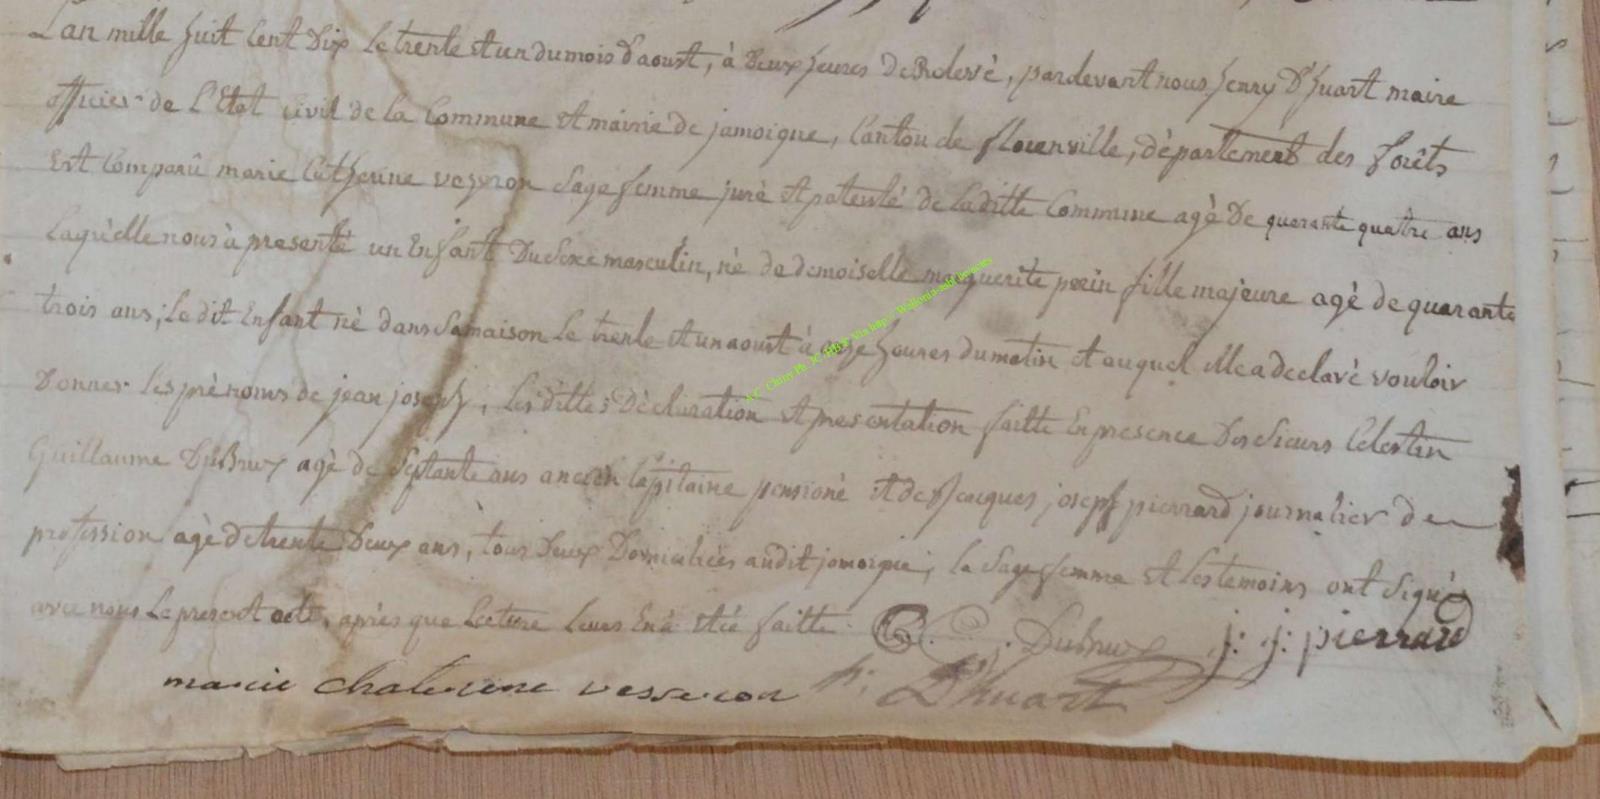 L'an mille huit Cent Dix Le trente et un du mois D'aoust, à Deux heures de Relevé, pardevant nous henry D'huart maire
officier de L'Etat Civil de la Commune et mairie de jamoigne, Canton de florenville, département des forêts
Est Comparû marie Catherine vesseron Sage femme juré et patenté de laditte Commune agé De quarante quatre ans
Laquèlle nous à presenté un Enfant Du Sexe masculin, né de demoiselle marguerite perin fille majeure agé de quarante
trois ans; Le dit Enfant né dans Sa maison Le trente et un aoust à onze heures du matin et auquel Elle a declaré vouloir
Donner les prénoms de jean joseph, Lesdittes Déclaration et presentation faitte En presence Des Sieurs Celestin
Guillaume DuBrux agé de Septante ans ancien Capitaine pensioné et de jacques joseph pierrard journalier de
profession agé de trente Deux ans, tous Deux Domiciliés audit jamoigne; la Sage femme et les temoins ont Signé
avec nous Le present acte, après que Lecture Leurs En à Eté faitte.
DuBrux j: j: pierrard
marie chaterine vesseron h: D'huart